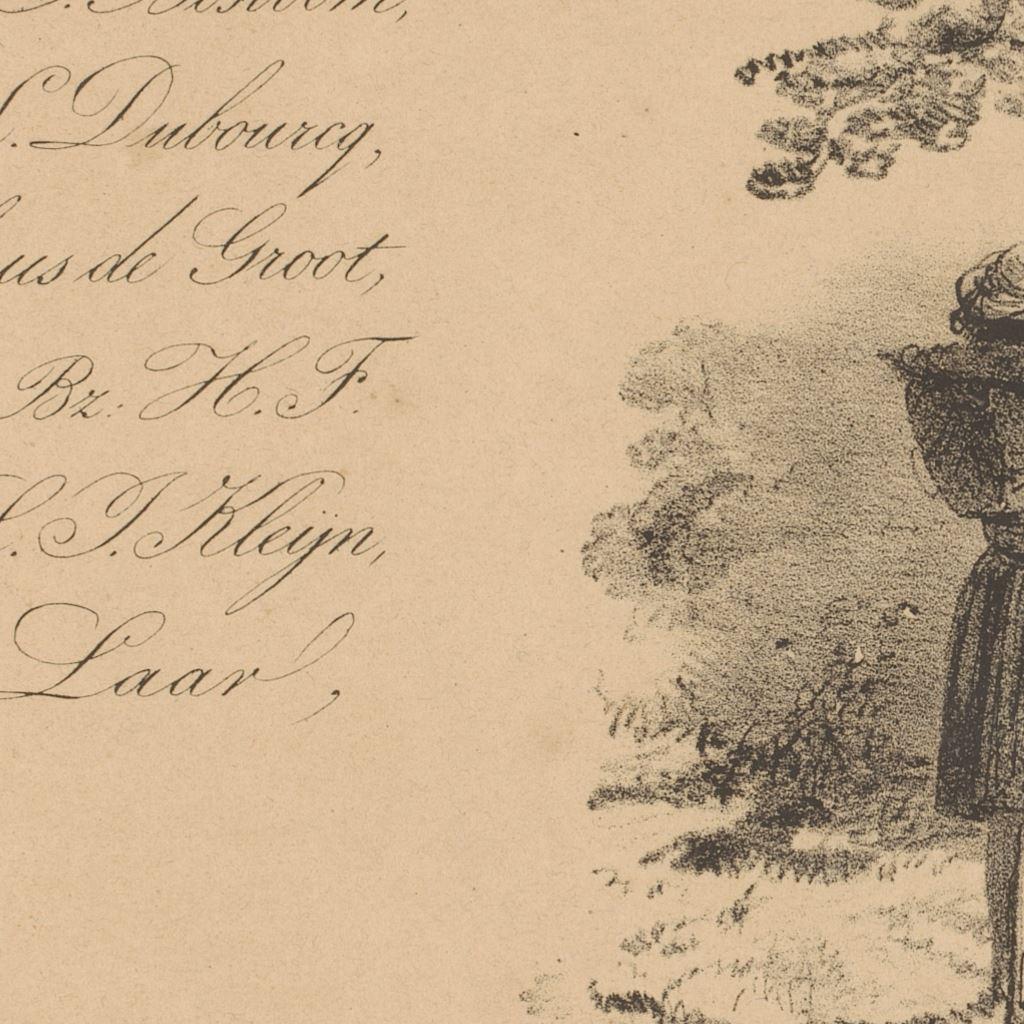 L. Dubourcq,
us de Groot,
Bz: H. F.
I. Kleijn,
Laar,